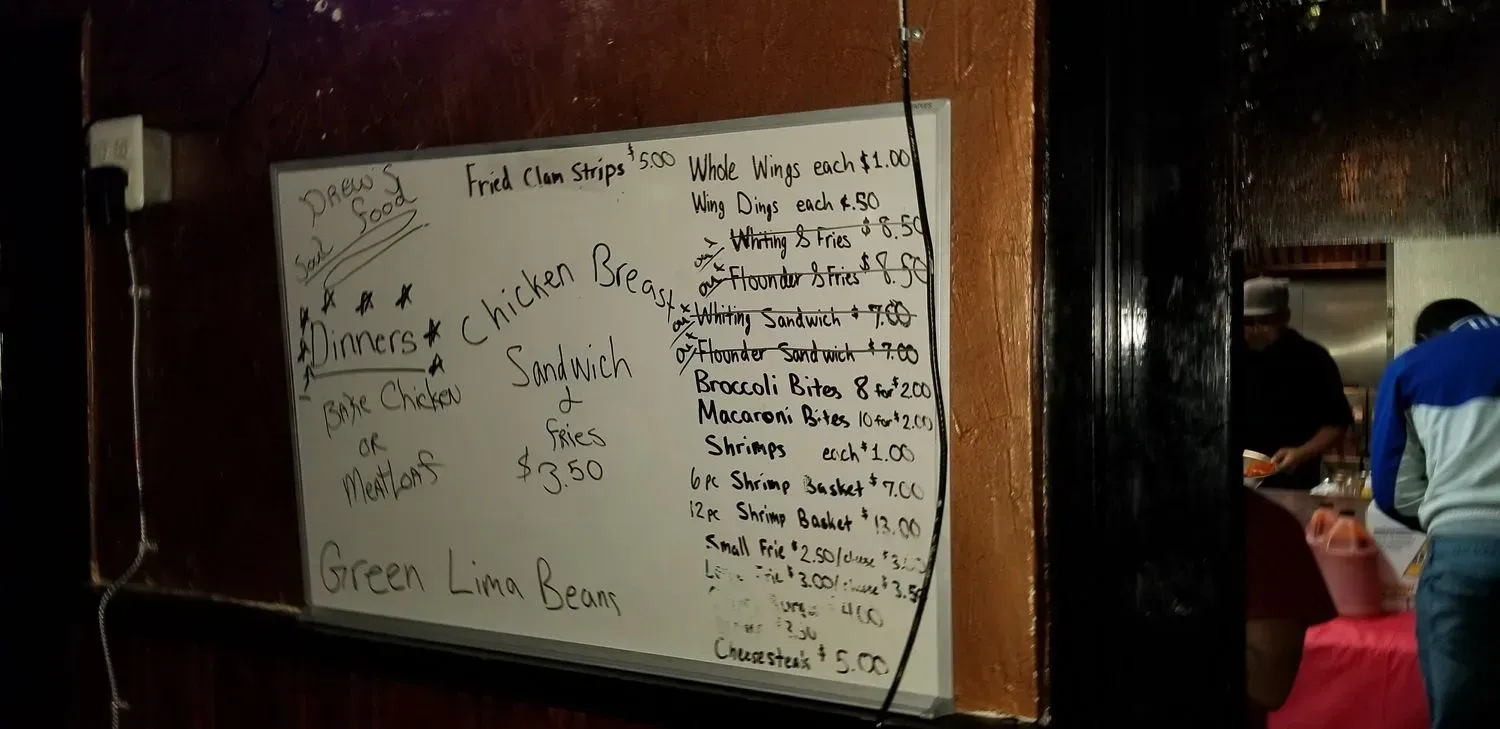 DREW'S
Soul Food
Dinners
BAKE Chicken
OR
MeatLoaf
Green Lima Beans
Fried Clam Strips $5.00
Chicken Breast
Sandwich
&
fries
$3.50
Whole Wings each $1.00
Wing Dings each ¢.50
out Whiting & Fries $8.50
out Flounder & Fries $8.50
out Whiting Sandwich $7.00
out Flounder Sandwich $7.00
Broccoli Bites 8 for $2.00
Macaroni Bites 10 for $2.00
Shrimps each $1.00
6pc Shrimp Basket $7.00
12pc Shrimp Basket $13.00
Small Frie $2.50/cheese
Frie $3.00/cheese $3.50
4.00
Cheesesteak $5.00
STAPLES